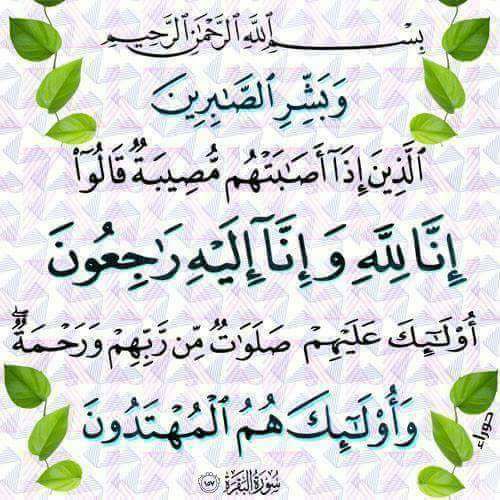 بِسْمِ اللَّهِ الرَّحْمَٰنِ الرَّحِيمِ
وَبَشِّرِ ٱلصَّٰبِرِينَ
ٱلَّذِينَ إِذَآ أَصَٰبَتْهُم مُّصِيبَةٌ قَالُوٓا۟
إِنَّا لِلَّهِ وَإِنَّآ إِلَيْهِ رَٰجِعُونَ
أُو۟لَٰٓئِكَ عَلَيْهِمْ صَلَوَٰتٌ مِّن رَّبِّهِمْ وَرَحْمَةٌ ۖ
وَأُو۟لَٰٓئِكَ هُمُ ٱلْمُهْتَدُونَ
سُورَةُ البَقَرَةِ ١٥٧
حوراء